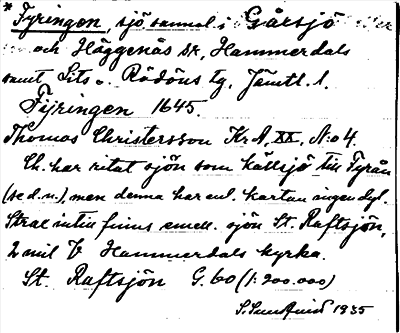 * Fyringen, sjö samt i Gåxsjö
och Häggenås sk, Hammerdals
samt Lits o. Rödöns tg, Jämtl. l.
Fijringen 1645.
Thomas Christersson Kr A, XX, No 4.
Ch. har ritat sjön som källsjö till Fyrån
(se d.n.), men denna har enl. kartan ingen dyl.
Strax intill finns emell. sjön St. Raftsjön,
2 mil V Hammerdals kyrka.
St. Raftsjön G. 60 (1:200.000)
1935